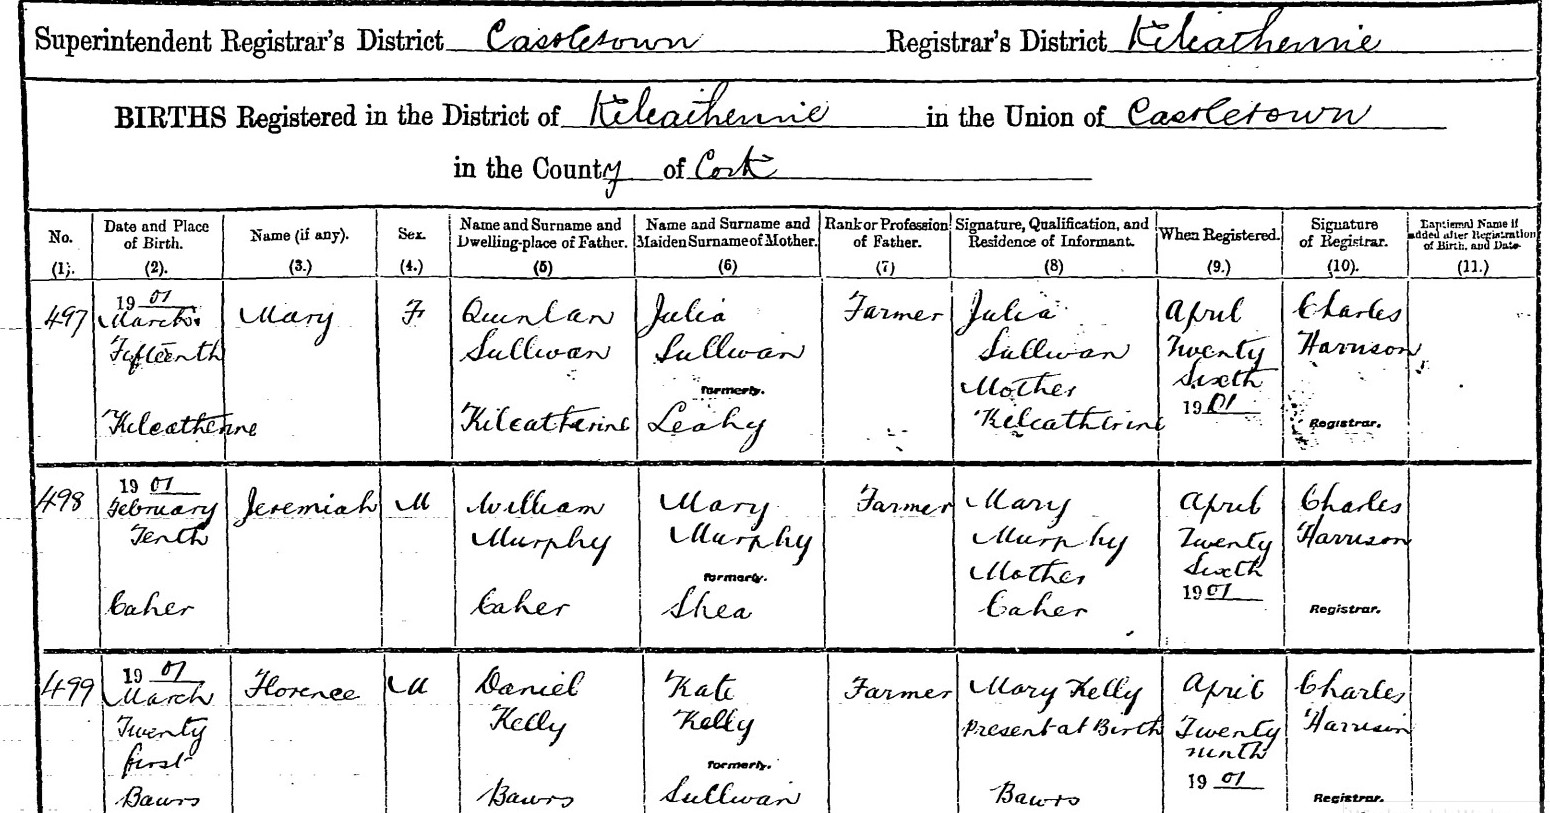 Superintendent Registrar's District Castletown Registrar's District Kilcatherine
BIRTHS Registered in the District of Kilcatherine in the Union of Castletown
in the County of Cork
No. (1).
Date and Place of Birth. (2).
Name (if any). (3.)
Sex. (4.)
Name and Surname and Dwelling-place of Father. (5)
Name and Surname and Maiden Surname of Mother. (6)
Rank or Profession of Father. (7)
Signature, Qualification, and Residence of Informant. (8)
When Registered. (9.)
Signature of Registrar. (10).
Baptismal Name if added after Registration of Birth, and Date (11.)
497
1901
March
Fifteenth
Kilcatherine
Mary
F
Quinlan
Sullivan
Kilcatherine
Julia
Sullivan
formerly.
Leahy
Farmer
Julia
Sullivan
Mother
Kilcatherine
April
Twenty
Sixth
1901
Charles
Harrison
Registrar.
498
1901
February
Tenth
Caher
Jeremiah
M
William
Murphy
Caher
Mary
Murphy
formerly.
Shea
Farmer
Mary
Murphy
Mother
Caher
April
Twenty
Sixth
1901
Charles
Harrison
Registrar.
499
1901
March
Twenty
first
Bawrs
Florence
M
Daniel
Kelly
Bawrs
Kate
Kelly
formerly.
Sullivan
Farmer
Mary Kelly
Present at Birth
Bawrs
April
Twenty
ninth
1901
Charles
Harrison
Registrar.